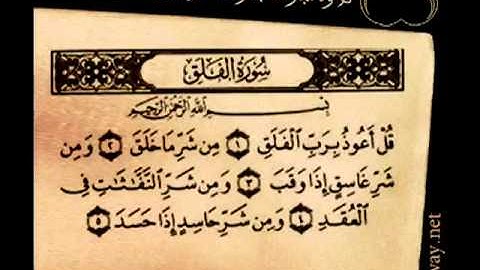 سُورَةُ الفَلَقِ
بِسْمِ اللَّهِ الرَّحْمَٰنِ الرَّحِيمِ
قُلْ أَعُوذُ بِرَبِّ الْفَلَقِ ١ مِن شَرِّ مَا خَلَقَ ٢ وَمِن
شَرِّ غَاسِقٍ إِذَا وَقَبَ ٣ وَمِن شَرِّ النَّفَّاثَاتِ فِي
الْعُقَدِ ٤ وَمِن شَرِّ حَاسِدٍ إِذَا حَسَدَ ٥
way.net